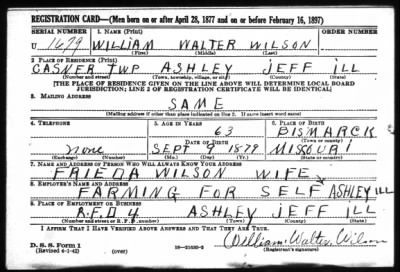 REGISTRATION CARD—(Men born on or after April 28, 1877 and on or before February 16, 1897)
SERIAL NUMBER 1. NAME (Print) ORDER NUMBER
U 1679 WILLIAM WALTER WILSON
(First) (Middle) (Last)
2. PLACE OF RESIDENCE (Print)
CASNER TWP ASHLEY JEFF ILL
(Number and street) (Town, township, village, or city) (County) (State)
[THE PLACE OF RESIDENCE GIVEN ON THE LINE ABOVE WILL DETERMINE LOCAL BOARD
JURISDICTION; LINE 2 OF REGISTRATION CERTIFICATE WILL BE IDENTICAL]
3. MAILING ADDRESS
SAME
[Mailing address if other than place indicated on line 2. If same insert word same]
4. TELEPHONE 5. AGE IN YEARS 6. PLACE OF BIRTH
63 BISMARCK
DATE OF BIRTH (Town or county)
none SEPT 9 1879 MISSOURI
(Exchange) (Number) (Mo.) (Day) (Yr.) (State or country)
7. NAME AND ADDRESS OF PERSON WHO WILL ALWAYS KNOW YOUR ADDRESS
FRIEDA WILSON WIFE
8. EMPLOYER'S NAME AND ADDRESS
FARMING FOR SELF ASHLEY ILL
9. PLACE OF EMPLOYMENT OR BUSINESS
R.F.D 4 ASHLEY JEFF ILL
(Number and street or R. F. D. number) (Town) (County) (State)
I AFFIRM THAT I HAVE VERIFIED ABOVE ANSWERS AND THAT THEY ARE TRUE.
D. S. S. Form 1 William Walter Wilson
(Revised 4-1-42) (over) (Registrant's signature)